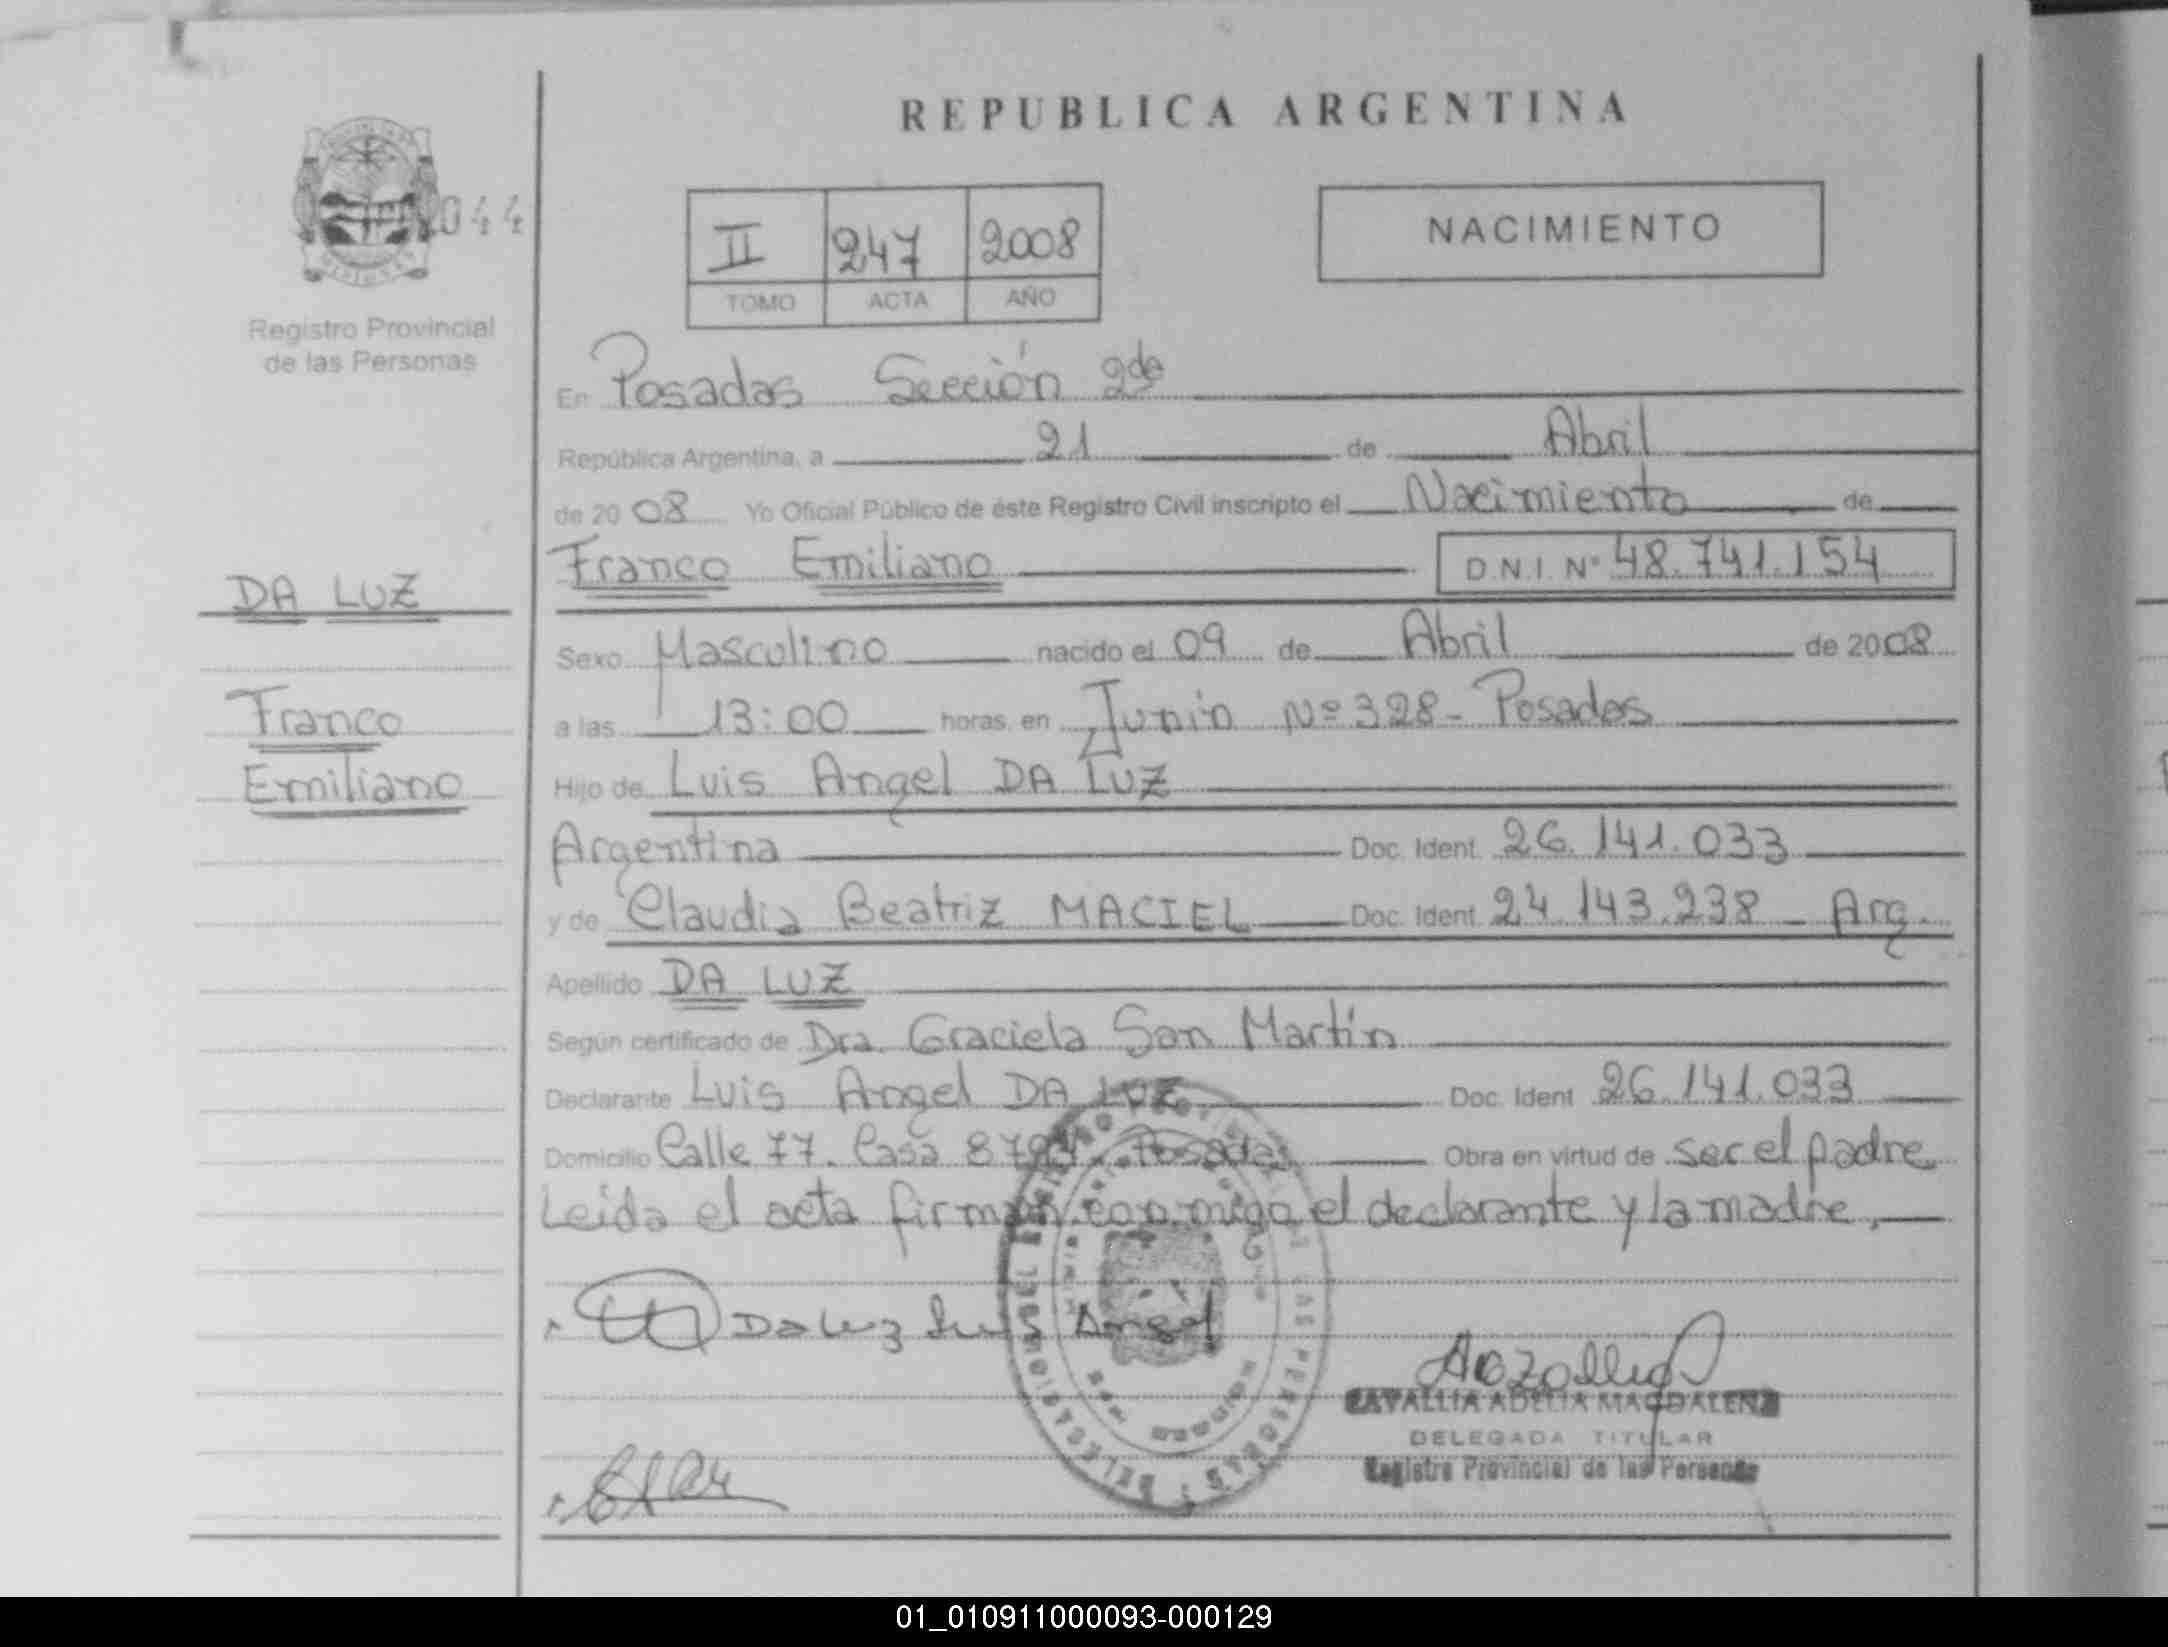 REPUBLICA ARGENTINA
044
II 247 2008
TOMO ACTA AÑO
NACIMIENTO
Registro Provincial
de las Personas
En Posadas Sección 2da
República Argentina, a 21 de Abril
de 2008 Yo Oficial Público de éste Registro Civil inscripto el Nacimiento de
Franco Emiliano D.N.I. Nº 48.741.154
DA LUZ
Franco
Emiliano
Sexo Masculino nacido el 09 de Abril de 2008
a las 13:00 horas, en Junin Nº 328 - Posadas
Hijo de Luis Angel DA LUZ
Argentina Doc. Ident. 26.141.033
y de Claudia Beatriz MACIEL Doc. Ident. 24.143.238 - Arg.
Apellido DA LUZ
Según certificado de Dra. Graciela San Martín
Declarante Luis Angel DA LUZ Doc. Ident 26.141.033
Domicilio Calle 77. Casa Posadas Obra en virtud de ser el padre
Leida el acta firman conmigo el declarante y la madre.
Da Luz Luis Angel
CAVALLIA ADELIA MAGDALENA
DELEGADA TITULAR
Registro Provincial de las Personas
01_010911000093-000129